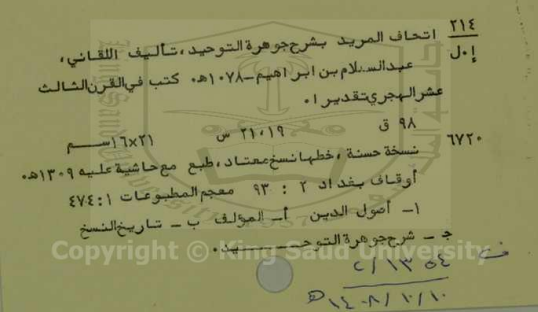 ٢١٤ اتحاف المريد بشرح جوهرة التوحيد، تأليف اللقاني،
إ.ل عبدالسلام بن ابراهيم -١٠٧٨هـ. كتب في القرن الثالث
عشر الهجري تقديرا.
٩٨ ق ٢١،١٩ س ١٦×٢١ سم
٦٧٢٠ نسخة حسنة، خطها نسخ معتاد، طبع مع حاشية عليه ١٣٠٩هـ.
أوقاف بغداد ٢ : ٩٣ معجم المطبوعات ١: ٤٧٤
١- أصول الدين أ- المؤلف ب- تاريخ النسخ
ج- شرح جوهرة التوحيد.
Copyright © King Saud University
ف ١٣٥٤/٢
١٤٠٨/١٠/١٠هـ